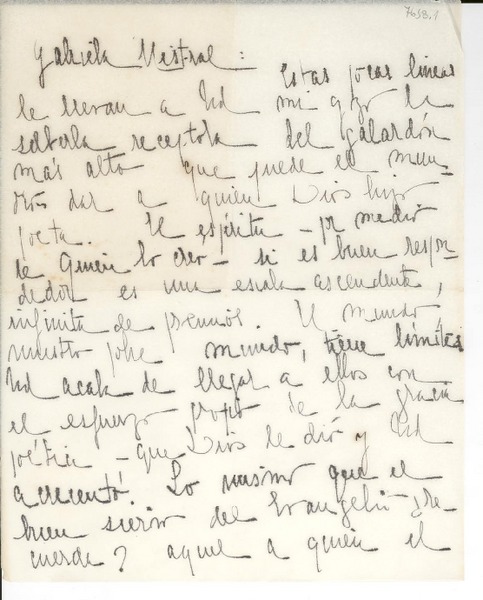 7658.1
Gabriela Mistral:
Estas pocas líneas
le llevan a Ud mi gozo de
saberla receptora del galardón
mas alto que puede el mun-
do dar a quien Dios hizo
poeta. El espíritu – por medio
de Quien lo creo – si es buen respon-
dedor es una escala ascendente,
infinita de premios. El mundo,
nuestro pobre mundo, tiene límites
Ud acaba de llegar a ellos con
el esfuerzo propio de la gracia
poética – que Dios le dió y Ud
acrecentó. Lo mismo que el
buen siervo del Evangelio ¿re-
cuerda? aquel a quien el